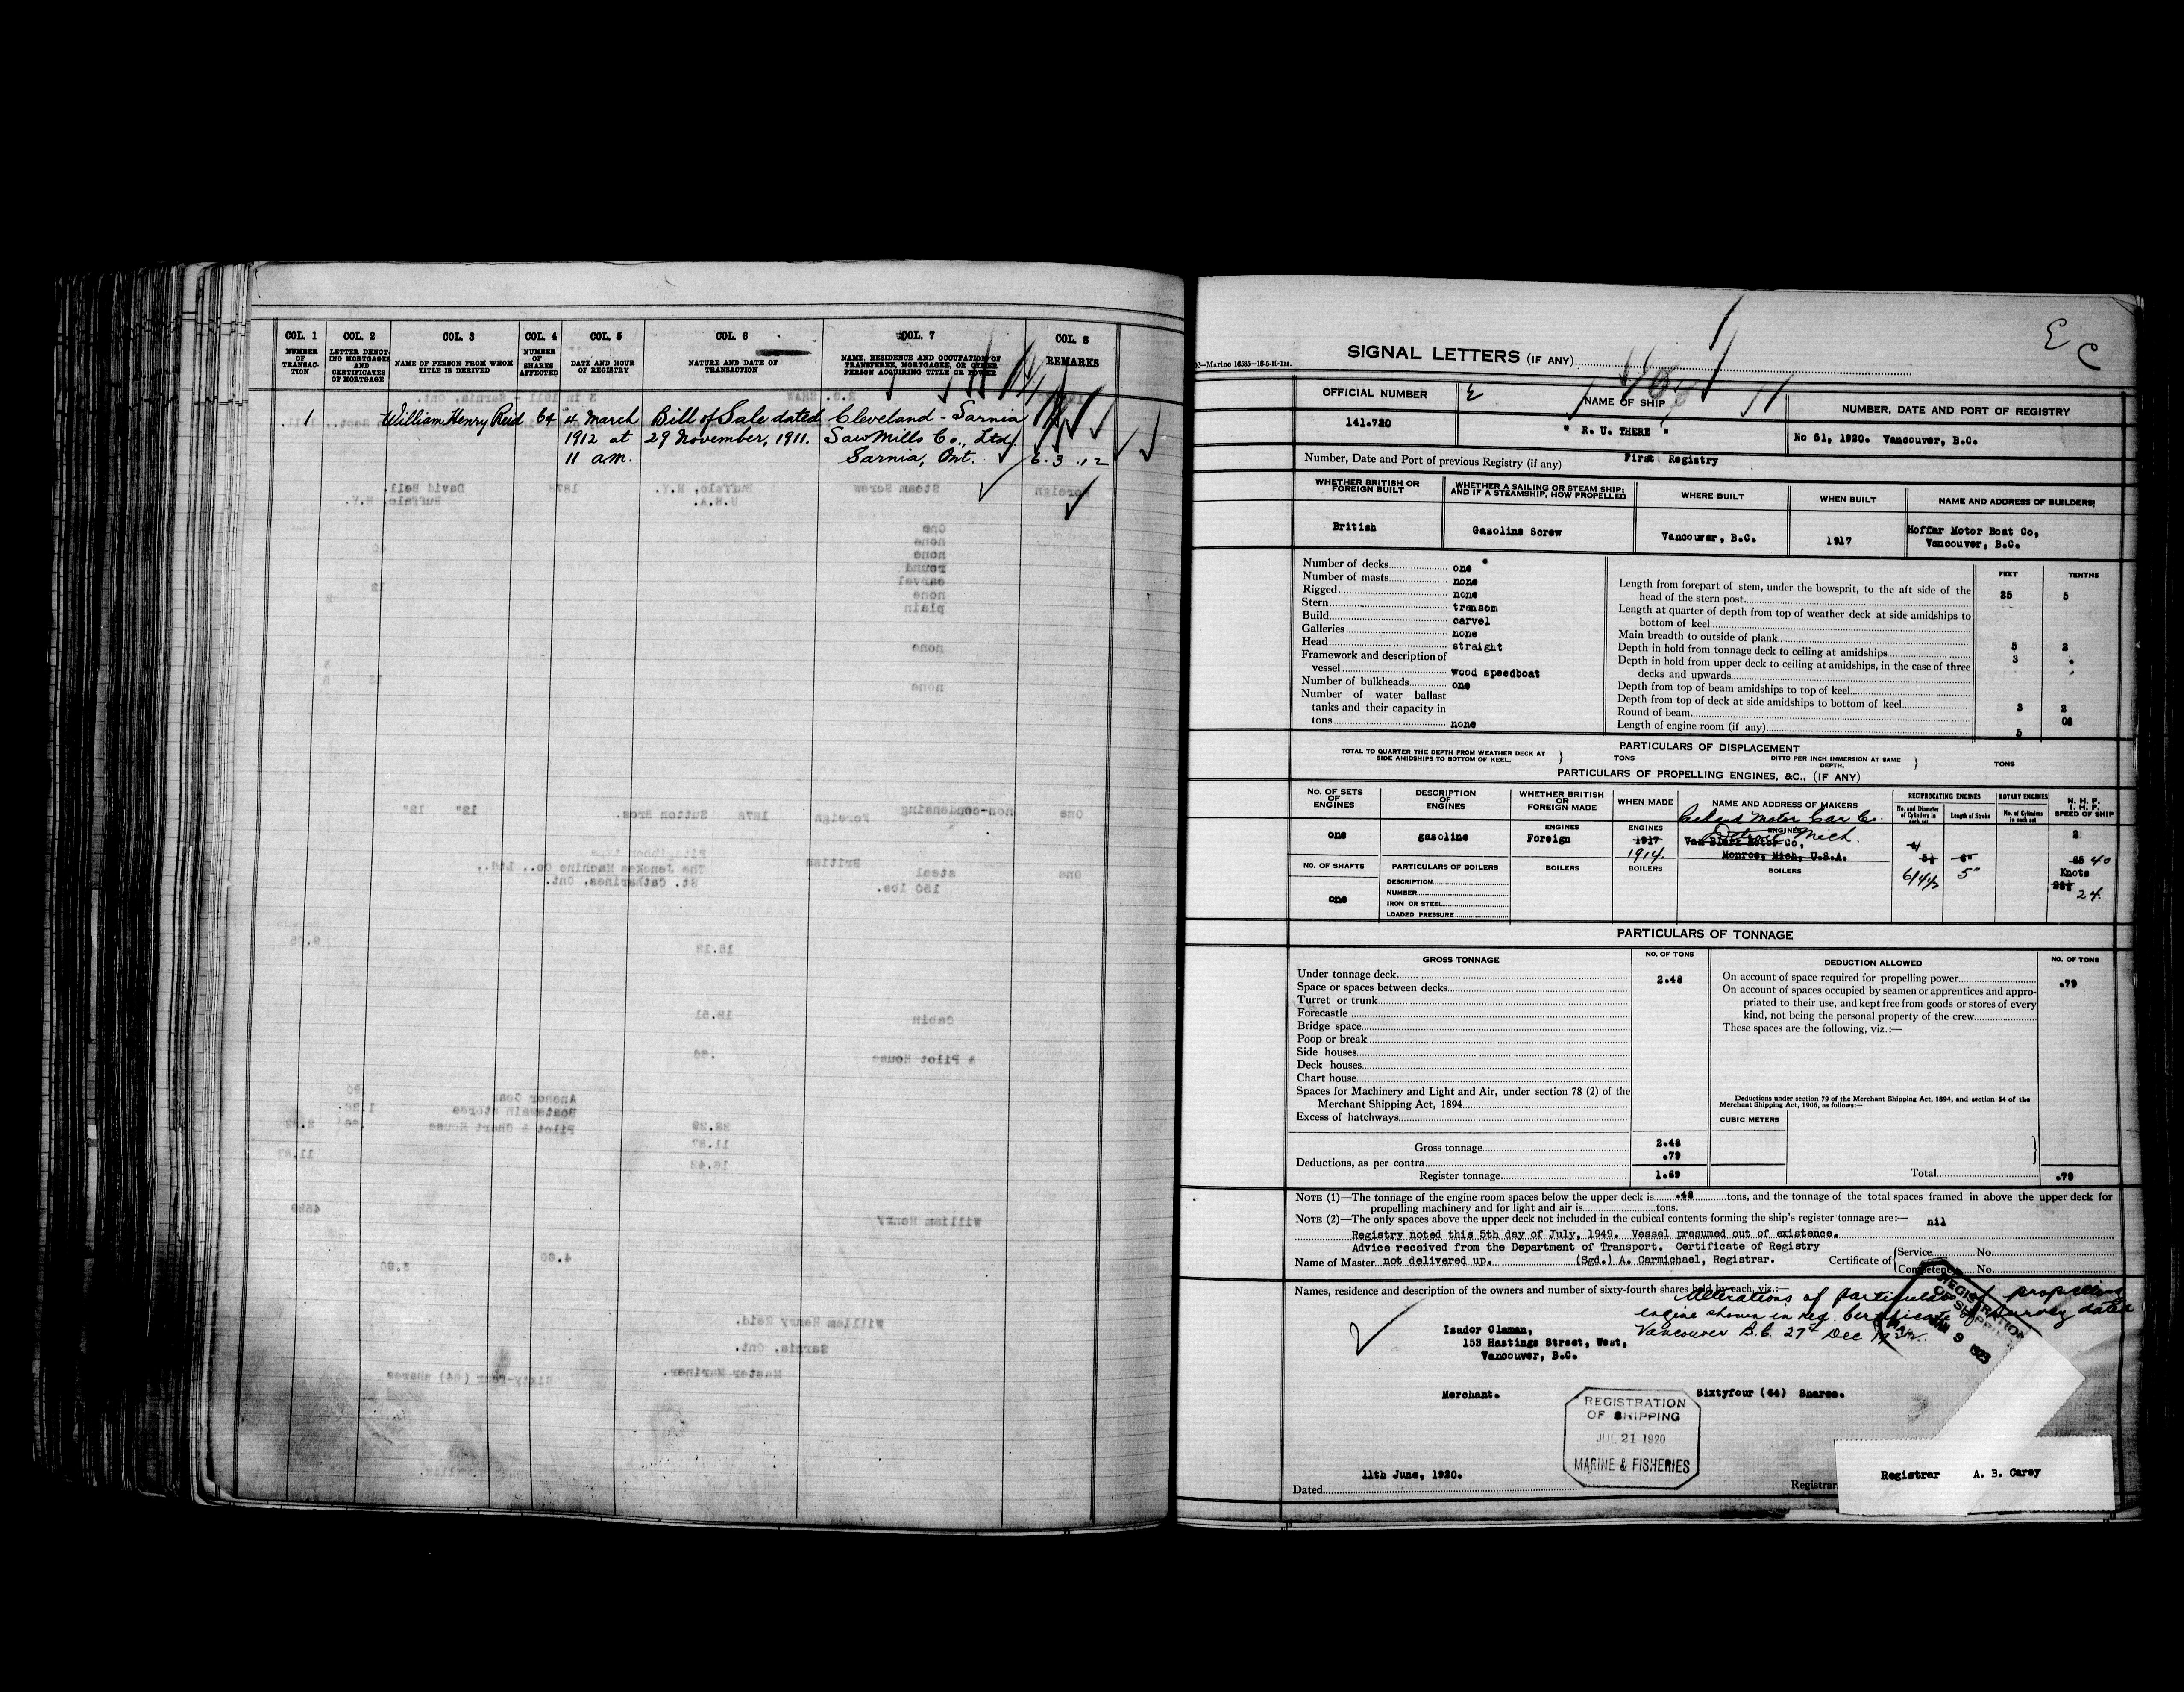 COL. 1 COL. 2 COL. 3 COL. 4 COL. 5 COL. 6 COL. 7 COL. 8
NUMBER OF TRANSAC- TION
LETTER DENOT- ING MORTGAGES AND CERTIFICATES OF MORTGAGE
NAME OF PERSON FROM WHOM TITLE IS DERIVED
NUMBER OF SHARES AFFECTED
DATE AND HOUR OF REGISTRY
NATURE AND DATE OF TRANSACTION
NAME, RESIDENCE AND OCCUPATION OF TRANSFEREE, MORTGAGEE, OR OTHER PERSON ACQUIRING TITLE OR POWER
REMARKS
1 William Henry Reid 64 4 March Bill of Sale dated Cleveland-Sarnia
1912 at 29 November, 1911. Saw Mills Co., Ltd.
11 a.m. Sarnia, Ont. 6.3.12
E C
SIGNAL LETTERS (IF ANY)
—Marine 16385—16-5-19-1M.
OFFICIAL NUMBER
NAME OF SHIP
NUMBER, DATE AND PORT OF REGISTRY
141.720
" R. U. THERE "
No 51, 1920. Vancouver, B.C.
Number, Date and Port of previous Registry (if any) First Registry
WHETHER BRITISH OR FOREIGN BUILT
WHETHER A SAILING OR STEAM SHIP; AND IF A STEAMSHIP, HOW PROPELLED
WHERE BUILT
WHEN BUILT
NAME AND ADDRESS OF BUILDERS
British
Gasoline Screw
Vancouver, B.C.
1917
Hoffar Motor Boat Co,
Vancouver, B.C.
Number of decks one
Number of masts none
Rigged none
Stern transom
Build carvel
Galleries none
Head straight
Framework and description of
vessel wood speedboat
Number of bulkheads one
Number of water ballast
tanks and their capacity in
tons none
FEET TENTHS
Length from forepart of stem, under the bowsprit, to the aft side of the
head of the stern post 25 5
Length at quarter of depth from top of weather deck at side amidships to
bottom of keel
Main breadth to outside of plank 5 2
Depth in hold from tonnage deck to ceiling at amidships 3
Depth in hold from upper deck to ceiling at amidships, in the case of three
decks and upwards
Depth from top of beam amidships to top of keel
Depth from top of deck at side amidships to bottom of keel 3 2
Round of beam 08
Length of engine room (if any) 5
PARTICULARS OF DISPLACEMENT
TOTAL TO QUARTER THE DEPTH FROM WEATHER DECK AT SIDE AMIDSHIPS TO BOTTOM OF KEEL. } TONS
DITTO PER INCH IMMERSION AT SAME DEPTH. } TONS
PARTICULARS OF PROPELLING ENGINES, &C., (IF ANY)
NO. OF SETS OF ENGINES
DESCRIPTION OF ENGINES
WHETHER BRITISH OR FOREIGN MADE
WHEN MADE
NAME AND ADDRESS OF MAKERS
RECIPROCATING ENGINES
No. and Diameter of Cylinders in each set
Length of Stroke
ROTARY ENGINES
No. of Cylinders in each set
N. H. P.
I. H. P.
SPEED OF SHIP
Packard Motor Car Co.
Detroit Mich.
one
gasoline
ENGINES
Foreign
ENGINES
1917
1914
ENGINES
Van Blerk Motor Co,
Monroe, Mich, U.S.A.
4
5½ 6"
6/4½ 5"
2
85 40
Knots
24.
NO. OF SHAFTS
one
PARTICULARS OF BOILERS
DESCRIPTION
NUMBER
IRON OR STEEL
LOADED PRESSURE
BOILERS
BOILERS
BOILERS
PARTICULARS OF TONNAGE
GROSS TONNAGE
NO. OF TONS
DEDUCTION ALLOWED
NO. OF TONS
Under tonnage deck 2.48
Space or spaces between decks
Turret or trunk
Forecastle
Bridge space
Poop or break
Side houses
Deck houses
Chart house
Spaces for Machinery and Light and Air, under section 78 (2) of the
Merchant Shipping Act, 1894
Excess of hatchways
Gross tonnage 2.48
Deductions, as per contra .79
Register tonnage 1.69
On account of space required for propelling power .79
On account of spaces occupied by seamen or apprentices and appro-
priated to their use, and kept free from goods or stores of every
kind, not being the personal property of the crew
These spaces are the following, viz.:—
Deductions under section 79 of the Merchant Shipping Act, 1894, and section 54 of the
Merchant Shipping Act, 1906, as follows:—
CUBIC METERS
Total .79
NOTE (1)—The tonnage of the engine room spaces below the upper deck is .48 tons, and the tonnage of the total spaces framed in above the upper deck for
propelling machinery and for light and air is tons.
NOTE (2)—The only spaces above the upper deck not included in the cubical contents forming the ship's register tonnage are:— nil
Registry noted this 5th day of July, 1949. Vessel presumed out of existence.
Advice received from the Department of Transport. Certificate of Registry
Name of Master not delivered up. (Sgd.) A. Carmichael, Registrar.
Certificate of { Service No.
Competency No.
Names, residence and description of the owners and number of sixty-fourth shares held by each, viz.:—
Alterations of particulars of propelling
engine shown in reg. Certificate & survey dated
Vancouver B.C. 27th Dec 1922.
REGISTRATION
OF SHIPPING
JAN 9 1923
Isador Claman,
153 Hastings Street, West,
Vancouver, B.C.
Merchant. Sixtyfour (64) Shares.
REGISTRATION
OF SHIPPING
JUL 21 1920
MARINE & FISHERIES
11th June, 1920.
Dated
Registrar
Registrar A. B. Carey